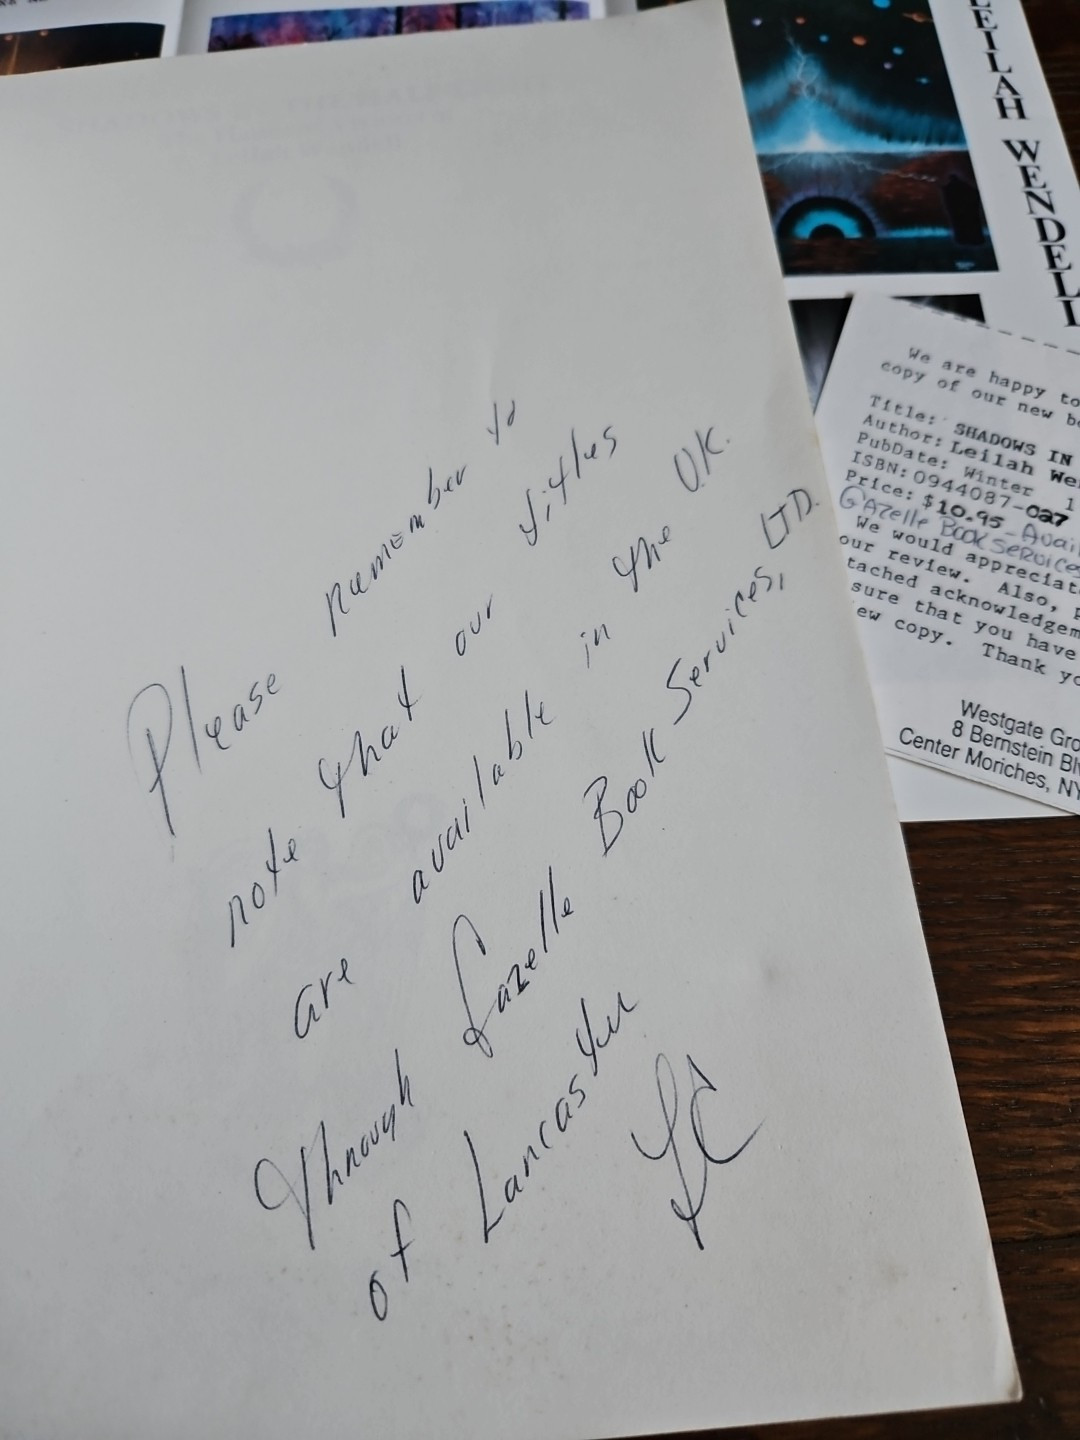 Please remember to
note that our titles
are available in the U.K.
Through Gazelle Book Services, LTD.
of Lancaster
LEILAH WENDELL
We are happy to
copy of our new
Title: SHADOWS IN
Author: Leilah We
PubDate: Winter 1
ISBN: 0944087-027
Price: $10.95 - Avai
Gazelle Book Services
We would appreciat
our review. Also, p
tached acknowledgem
sure that you have
ew copy. Thank yo
Westgate Gro
8 Bernstein Blv
Center Moriches, NY